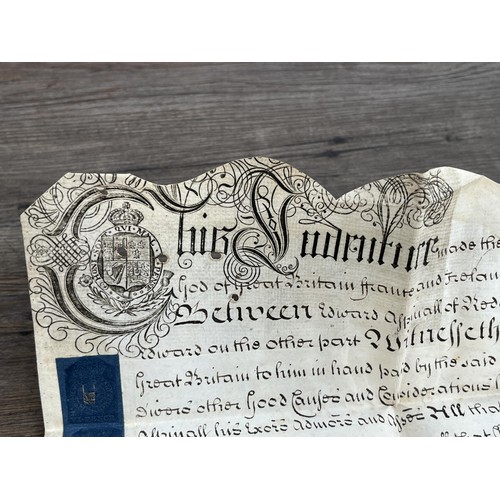 This Indenture made the
God of Great Britain France and Ireland
Between Edward Aspinall of Red
Edward on the other part Witnesseth
Great Britain to him in hand paid by the said
divers other Good Causes and Considerations
Aspinall his Exors Admors and Assigns All that